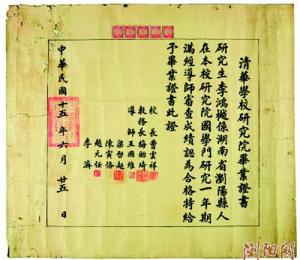 清華學校研究院畢業證書
研究生李鴻樾係湖南省瀏陽縣人
在本校研究院國學門研究一年期
滿經導師審查成績認為合格特給
予畢業證書此證
校長曹雲祥
教務長梅貽琦
導師王國維
梁啟超
陳寅恪
趙元任
李濟
中華民國十五年六月廿五日
瀏陽網